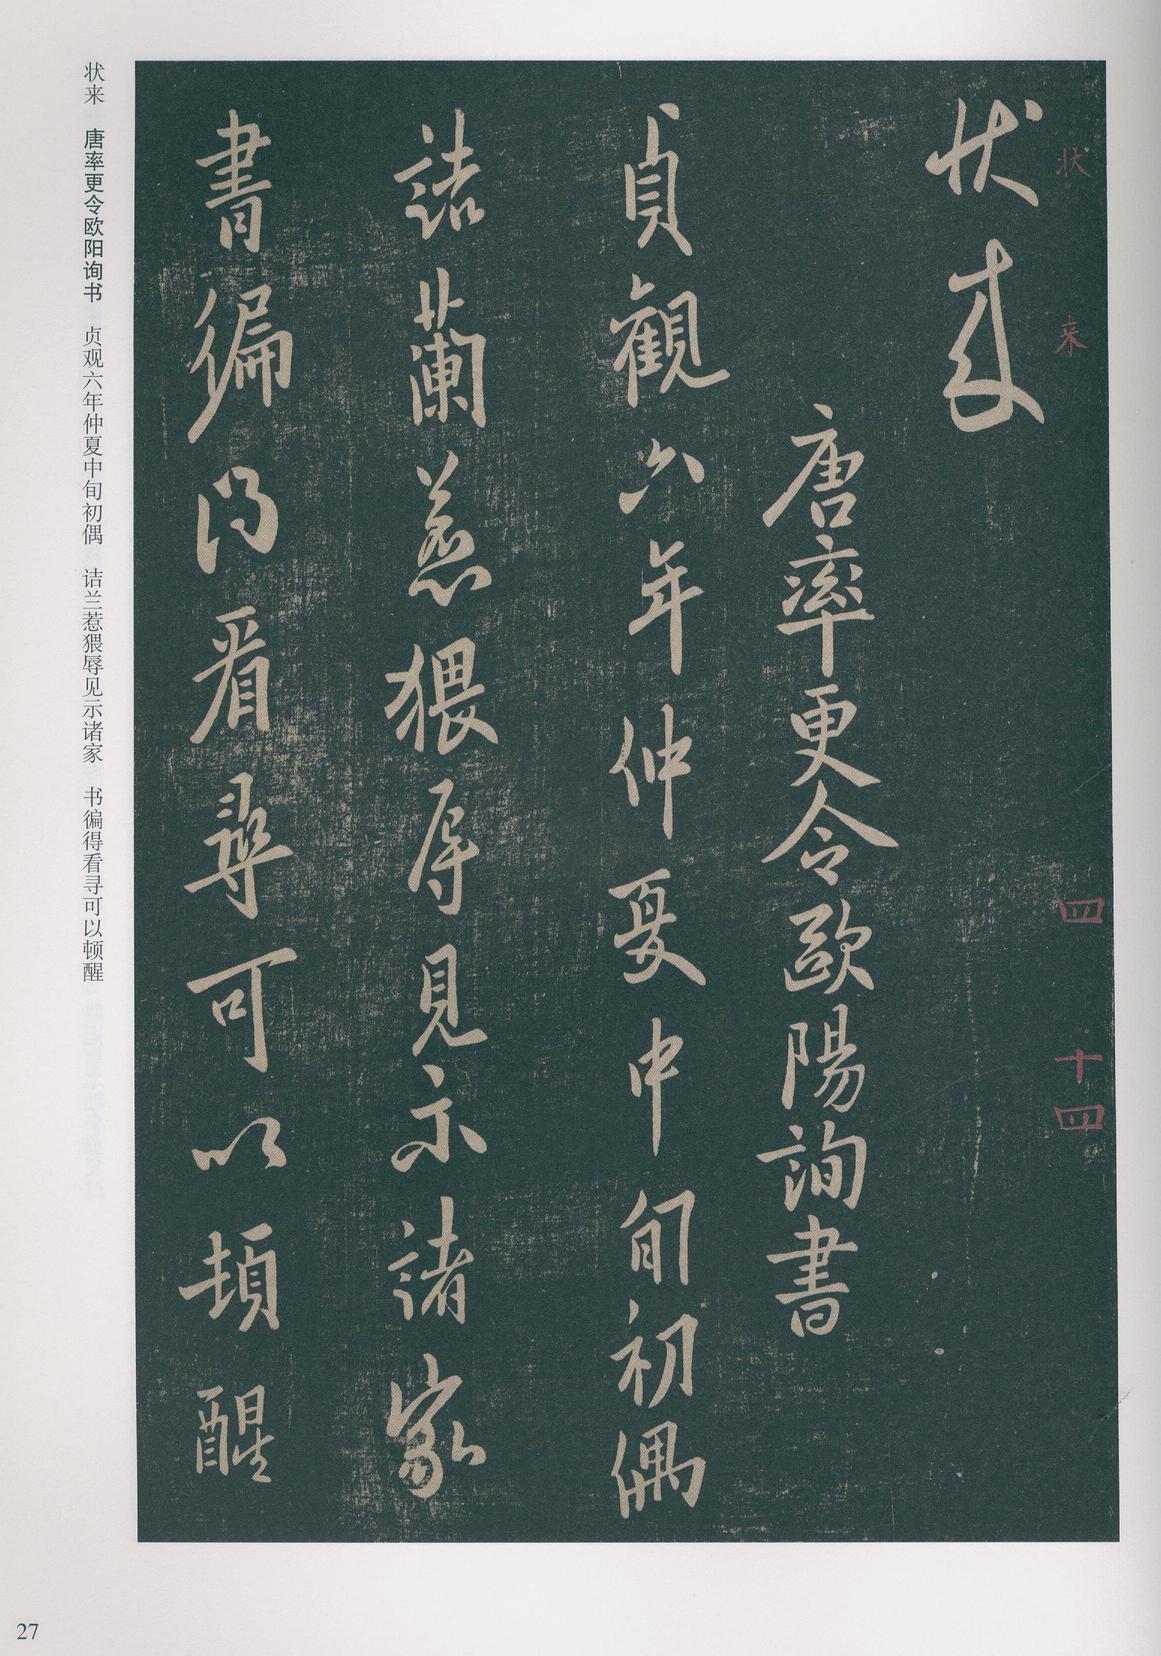 状 来 四 十四
状来
唐率更令歐陽詢書
貞觀六年仲夏中旬初偶
詰蘭惹猥辱見示諸家
書徧得看尋可以頓醒
状来 唐率更令欧阳询书 贞观六年仲夏中旬初偶 诘兰惹猥辱见示诸家 书徧得看寻可以顿醒
27